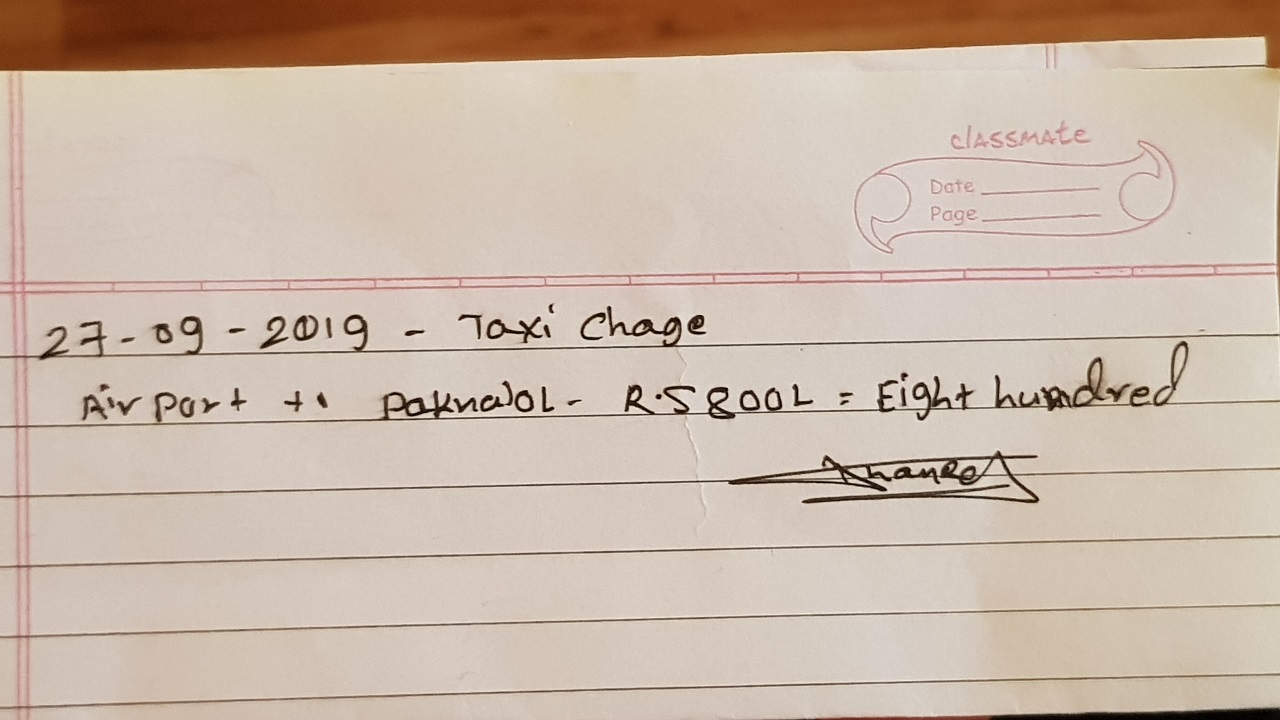 classmate
Date
Page
27-09-2019 - Taxi Chage
Air Port to Paknajol - R.S 800L = Eight hundred